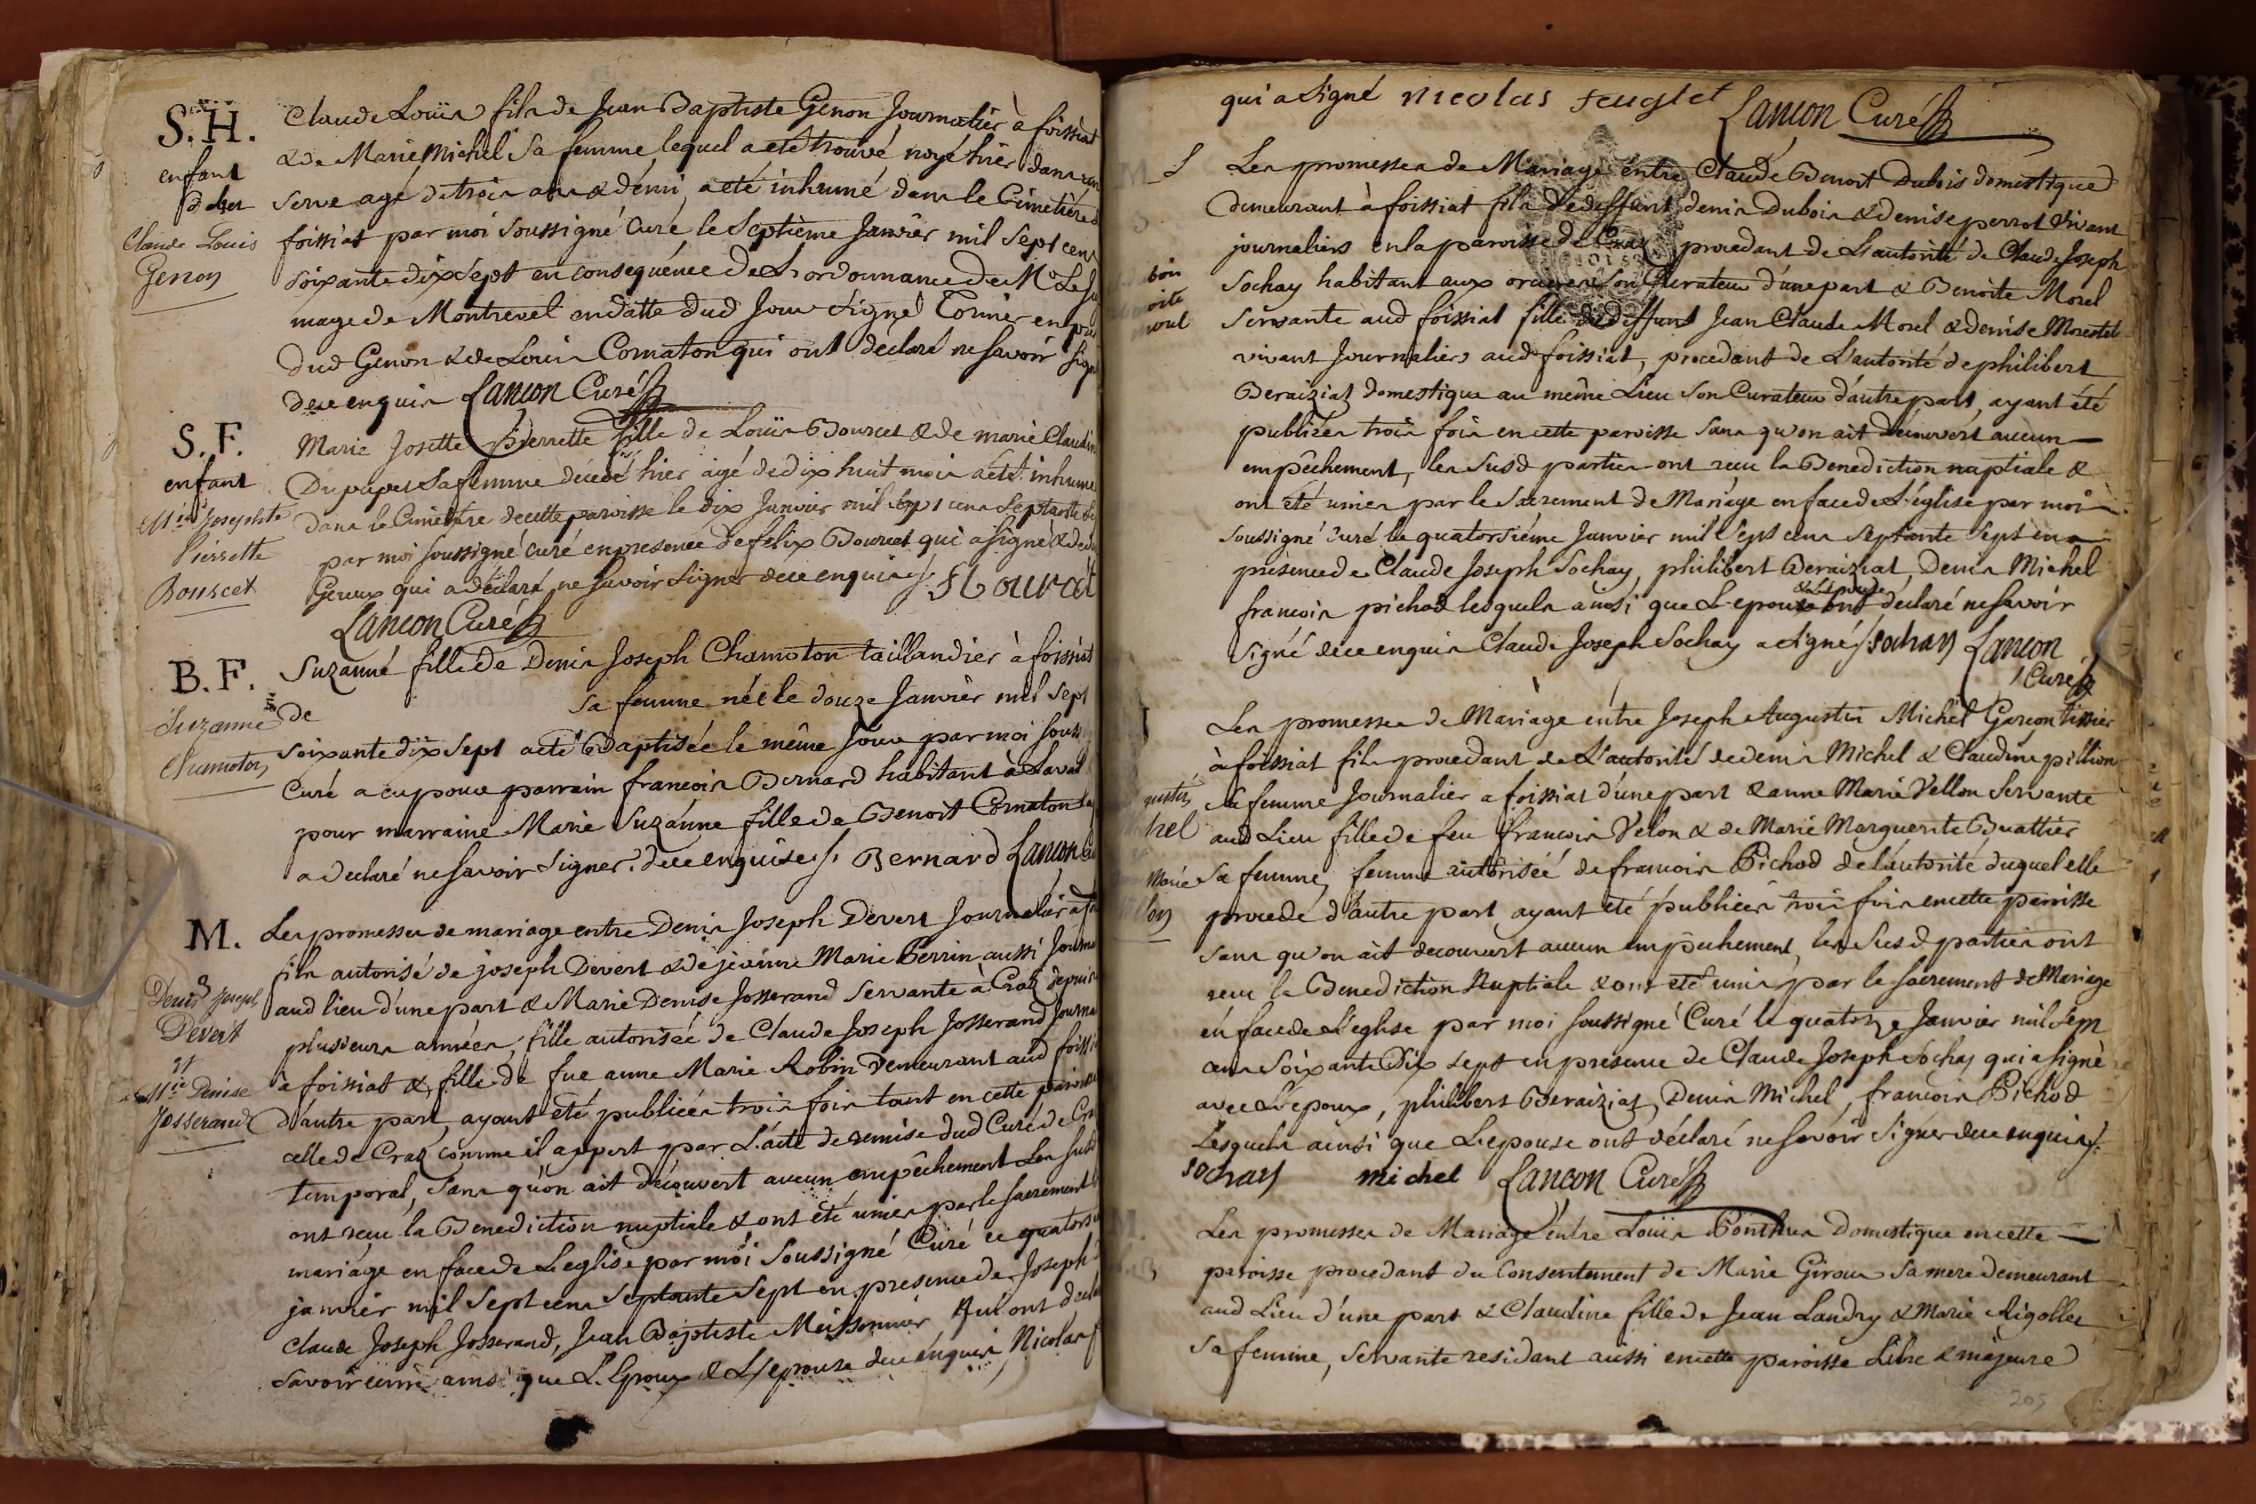 S. H.
enfant
Claude Louis
Genon
Claude Louis fils de Jean Baptiste Genon Journalier à foissiat
& de Marie Michel sa femme lequel a eté trouvé noyé hier dans un
serve agé de trois ans & demi, a eté inhumé dans le Cimetière d
foissiat par moi soussigné Curé le septième Janvier mil sept cens
soixante dix sept en consequence de L'ordonnance de Mr Le Ju
mage de Montrevel en datte dud Jour signé Tornier en prés
dud Genon & de Louis Cornaton qui ont declaré ne savoir sign
de ce enquis Lancon Curé
S. F.
enfant
Mie Josephte
Pierrette
Bourcet
Marie Josette Pierrette fille de Louis Bourcet & de marie Claudin
Dupupet sa femme décédé hier agé de dix huit mois a eté inhume
dans le Cimetière de cette paroisse le dix Janvier mil sept cens septante se
par moi soussigné curé en presence de felix Bourcet qui a signé & de
Geroux qui a déclaré ne savoir signer de ce enquis
Lancon Curé
B. F.
Suzanne
Chamoton
Suzanne fille de Denis Joseph Chamoton taillandier à foissiat
de sa femme née le douze Janvier mil sept
soixante dix sept a eté Baptisée le même Jour par moi souss
Curé a eu pour parrain francois Bernard habitant à Laval
pour marraine Marie Suzanne fille de Benoit Cornaton
a declaré ne savoir signer de ce enquise /. Bernard Lancon
M.
Denis Joseph
Devert
et
Mie Denise
Josserand
Les promesses de mariage entre Denis Joseph Devert Journalier a
fils autorisé de joseph Devert & de jeanne Marie Perrin aussi Journa
aud lieu d'une part & Marie Denise Josserand servante à Craz depuis
plusieurs années, fille autorisée de Claude Joseph Josserand Journa
à foissiat & fille de fue anne Marie Robin demeurant aud foissi
d'autre part, ayant été publiées trois fois tant en cette paroisse
celle de Craz comme il appert par L'acte de remise dud Curé de Cra
temporal, sans qu'on ait découvert aucun empêchement Les susd
ont recu la Benediction nuptiale & ont été unies par le sacrement
mariage en face de L'eglise par moi soussigné Curé ce quators
janvier mil sept cens septante sept en presence de Joseph
Claude Joseph Josserand, Jean Baptiste Meissonnier qui ont decla
savoir écrire ainsi que L'Epoux & L'epouse de ce enquis Nicolas
qui a signé nicolas feuglet Lancon Curé
Les promesses de Mariage entre Claude Benoit Dubois domestique
demeurant à foissiat fils de deffunt denis Dubois & denise perrot vivant
journaliers en la paroisse de Craz procedant de L'autorité de Claude Joseph
Sochay habitant aux son Curateur d'une part & Benoite Morel
servante aud foissiat fille de deffunt Jean Claude Morel & denise Morestel
vivant Journaliers aud foissiat, procedant de L'autorité de philibert
Beraiziat domestique au même Lieu son Curateur d'autre part, ayant été
publiées trois fois en cette paroisse sans qu'on ait découvert aucun
empêchement, les susd parties ont recu la Benediction nuptiale &
ont été unies par le sacrement de Mariage en face de L'église par moi
soussigné Curé le quatorsiéme Janvier mil sept cens septante sept en
présence de Claude Joseph Sochay, philibert Beraiziat, Denis Michel
& L'epouse
francois pichod lesquels ainsi que L'epoux ont declaré ne savoir
signé de ce enquis Claude Joseph Sochay a signé /. sochay Lancon
Curé
Les promesses de Mariage entre Joseph Augustin Michel Garçon tissier
à foissiat fils procedant de L'autorité de denis Michel & Claudine pillion
sa femme Journalier a foissiat d'une part & anne Marie Vellon servante
aud Lieu fille de feu francois Velon & de Marie Marguerite Buattier
sa femme, femme autorisée de francois Pichod de l'autorité duquel elle
procede d'autre part ayant été publiées trois fois en cette paroisse
sans qu'on ait decouvert aucun empêchement, les susd parties ont
recu la Benediction Nuptiale & ont eté unis par le sacrement de Mariage
en face de L'eglise par moi soussigné Curé le quatorze Janvier mil sept
cens soixante Dix sept en presence de Claude Joseph Sochay qui a signé
avec L'epoux, philibert Beraiziat, Denis Michel, francois Pichod
Lesquels ainsi que L'epouse ont déclaré ne savoir signer de ce enquis /.
sochay michel Lancon Curé
Les promesses de Mariage entre Louis Ponthus Domestique en cette
paroisse procedant du Consentement de Marie Giroux sa mere demeurant
aud Lieu d'une part & Claudine fille de Jean Landry & Marie Rigollet
sa femme, servante residant aussi en cette paroisse Libre & majeure
205